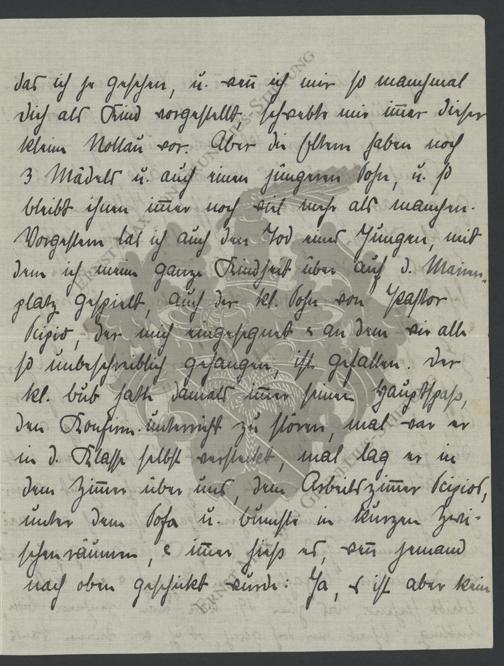 das ich je gesehen, u. wen̄ ich mir so manchmal
Dich als Kind vorgestellt, schwebte mir im̄er dieser
kleine Nollau vor. Aber die Eltern haben noch
3 Mädels u. auch einen jüngeren Sohn, u. so
bleibt ihnen im̄er noch viel mehr als manchen.
Vorgestern las ich auch den Tod eines Jungen, mit
dem ich meine ganze Kindheit über auf d.
platz gespielt, auch der kl. Sohn von Pastor
Scipio, der mich eingesegnet & an dem wir alle
so unbeschreiblich gehangen, ist gefallen. Der
kl. bub hatte damals im̄er seinen Hauptspaß,
den Konfirm.unterricht zu stören, mal war er
in d. Klasse selbst versteckt, mal lag er in
dem Zim̄er über uns, dem Arbeitszim̄er Scipios,
unter dem Sofa u. bumste in kurzen Zwi-
schenräumen, & im̄er hieß es, wen̄ jemand
nach oben geschickt wurde: Ja, es ist aber kein
ERNST STIFTUNG